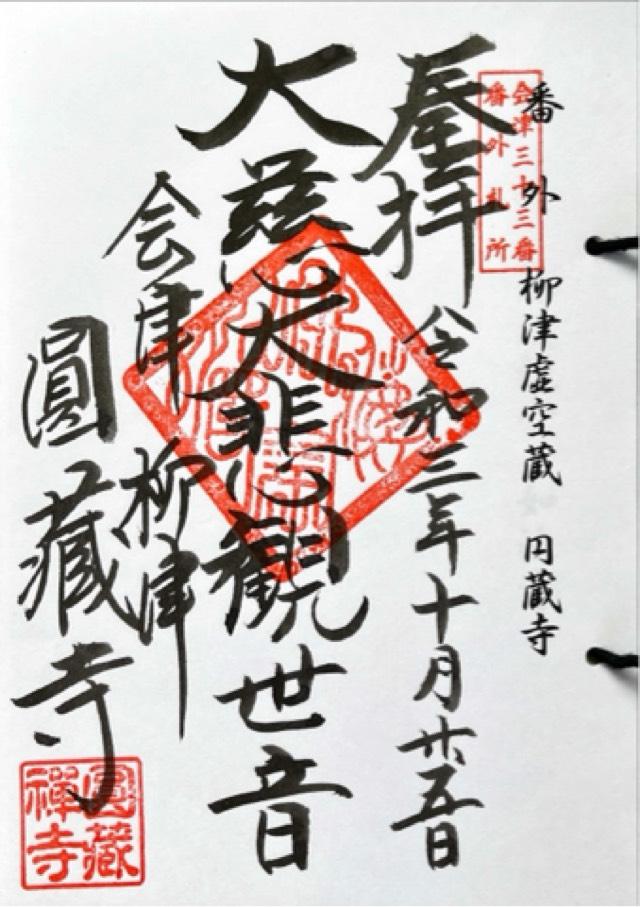 番外 柳津虚空蔵 円蔵寺
会津三十三番
番外札所
奉拝 令和三年十月廿五日
大慈大悲観世音
会津柳津
圓藏寺
圓藏
禅寺